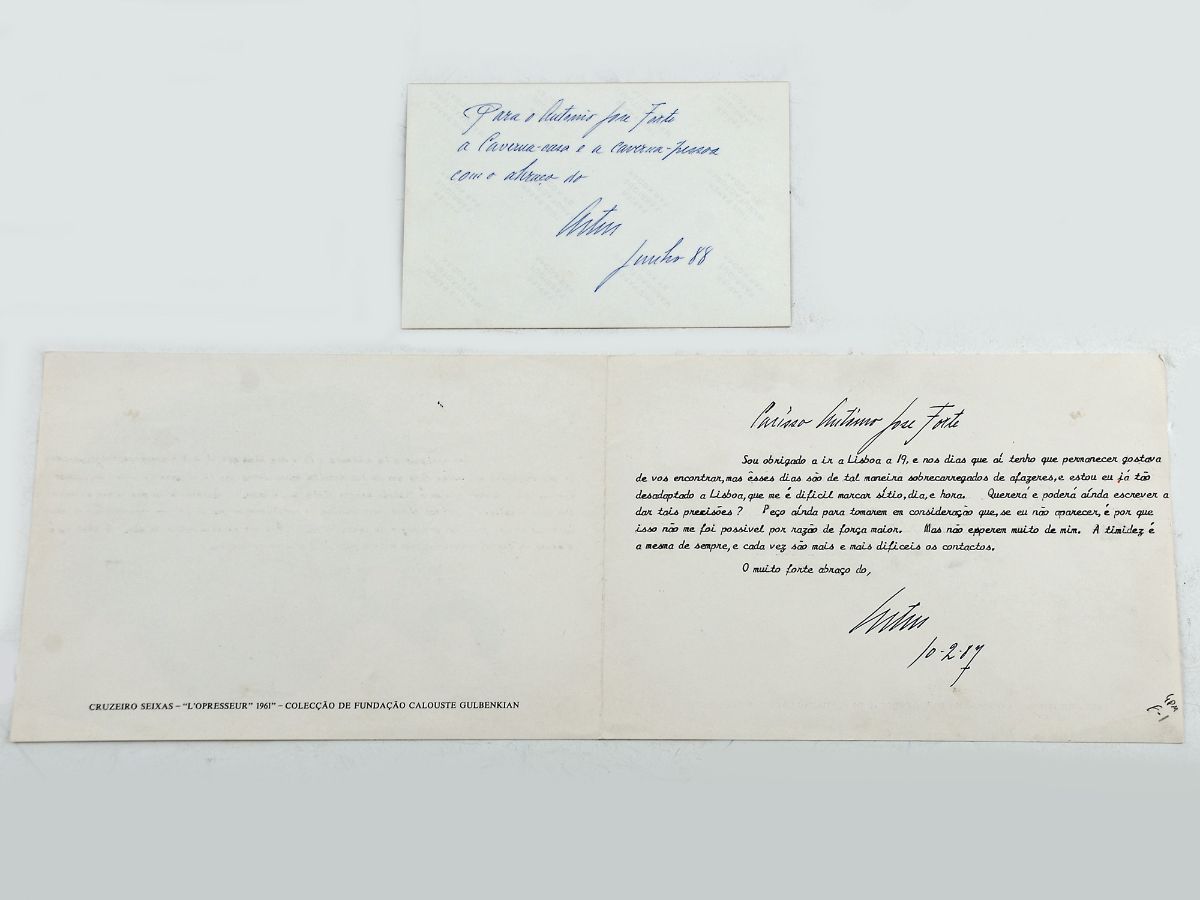 Para o António José Forte
a Caverna-casa e a caverna-pessoa
com o abraço do
Artur
Junho 88
Caríssimo António José Forte
Sou obrigado a ir a Lisboa a 19, e nos dias que aí tenho que permanecer gostava
de vos encontrar, mas êsses dias são de tal maneira sobrecarregados de afazeres, e estou eu já tão
desadaptado a Lisboa, que me é dificil marcar sítio, dia, e hora. Quererá e poderá aínda escrever a
dar tais precisões? Peço aínda para tomarem em consideração que, se eu não aparecer, é por que
isso não me foi possivel por razão de força maior. Mas não esperem muito de mim. A timidez é
a mesma de sempre, e cada vez são mais e mais dificeis os contactos.
O muito forte abraço do,
Artur
10-2-87
CRUZEIRO SEIXAS – "L'OPRESSEUR" 1961" – COLECÇÃO DE FUNDAÇÃO CALOUSTE GULBENKIAN